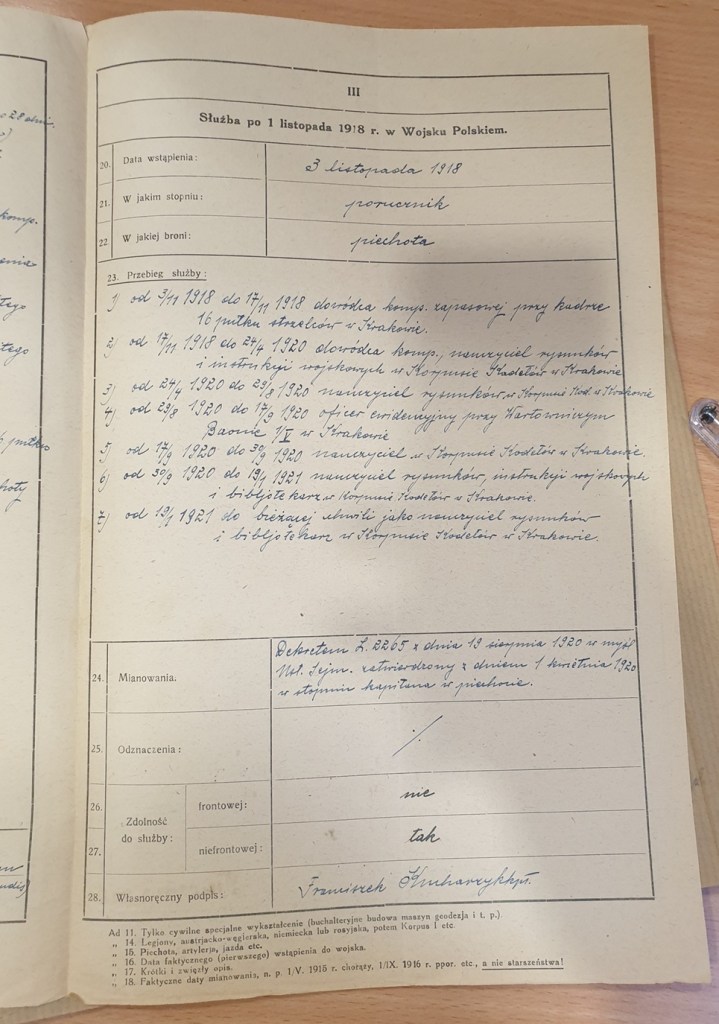 28 dni.
komp.
III
Służba po 1 listopada 1918 r. w Wojsku Polskiem.
20. Data wstąpienia: 3 listopada 1918
21. W jakim stopniu: porucznik
22. W jakiej broni: piechota
23. Przebieg służby:
1) od 3/11 1918 do 17/11 1918 dowódca komp. zapasowej przy kadrze
16 pułku strzelców w Krakowie.
2) od 17/11 1918 do 24/4 1920 dowódca komp., nauczyciel rysunków
i instrukcji wojskowych w Korpusie Kadetów w Krakowie
3) od 24/4 1920 do 29/8 1920 nauczyciel rysunków, w Korpusie Kad. w Krakowie
4) od 29/8 1920 do 17/9 1920 oficer ewidencyjny przy Wartowniczym
Baonie 1/V w Krakowie
5) od 17/9 1920 do 30/9 1920 nauczyciel w Korpusie Kadetów w Krakowie.
6) od 30/9 1920 do 19/1 1921 nauczyciel rysunków, instrukcji wojskowych
i bibljotekarz w Korpusie Kadetów w Krakowie.
7) od 19/1 1921 do bieżącej chwili jako nauczyciel rysunków
i bibljotekarz w Korpusie Kadetów w Krakowie.
24. Mianowania. Dekretem L. 2265 z dnia 19 sierpnia 1920 w myśl
Ust. Sejm. zatwierdzony z dniem 1 kwietnia 1920
w stopniu kapitana w piechocie.
25. Odznaczenia: ·/.
26. Zdolność do służby: frontowej: nie
27. niefrontowej: tak
28. Własnoręczny podpis: Franciszek Kucharzyk kpt.
Ad 11. Tylko cywilne specjalne wykształcenie (buchalteryjne budowa maszyn geodezja i t. p.).
„ 14. Legiony, austrjacko-węgierska, niemiecka lub rosyjska, potem Korpus I etc.
„ 15. Piechota, artylerja, jazda etc.
„ 16. Data faktycznego (pierwszego) wstąpienia do wojska.
„ 17. Krótki i zwięzły opis.
„ 18. Faktyczne daty mianowania, n. p. 1/V. 1915 r. chorąży, 1/IX. 1916 r. ppor. etc., a nie starszeństwa!